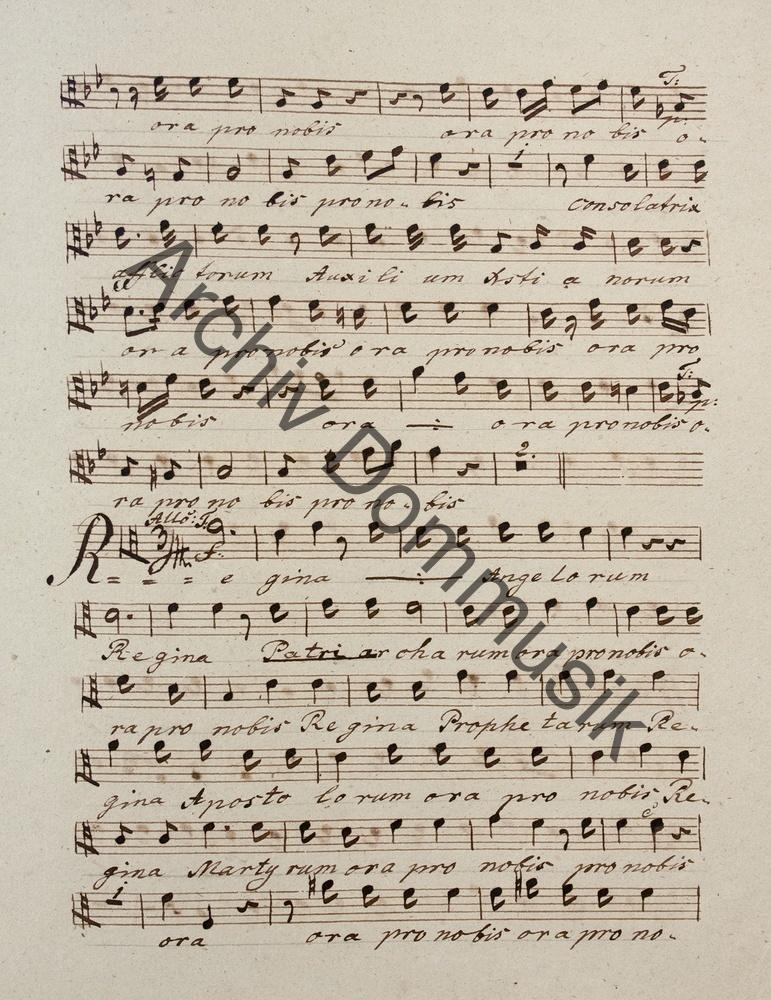 T:
ora pro nobis ora pro no bis o-
p:
ra pro no bis pro no - bis Consolatrix
1
aflic torum Auxi li um Xsti a norum
ora pro nobis ora pro nobis ora pro
T:
nobis ora ora pro nobis o-
p:
2.
ra pro no bis pro no - bis
Allo: T:
3/4
f:
R = = = e gina Ange lo rum
Regina Patri ar cha rum ora pro nobis o-
ra pro nobis Regina Prophe ta rum Re-
gina Aposto lo rum ora pro nobis Re-
gina Marty rum ora pro nobis pro nobis
1
ora ora pro nobis ora pro no-
Archiv Dommusik